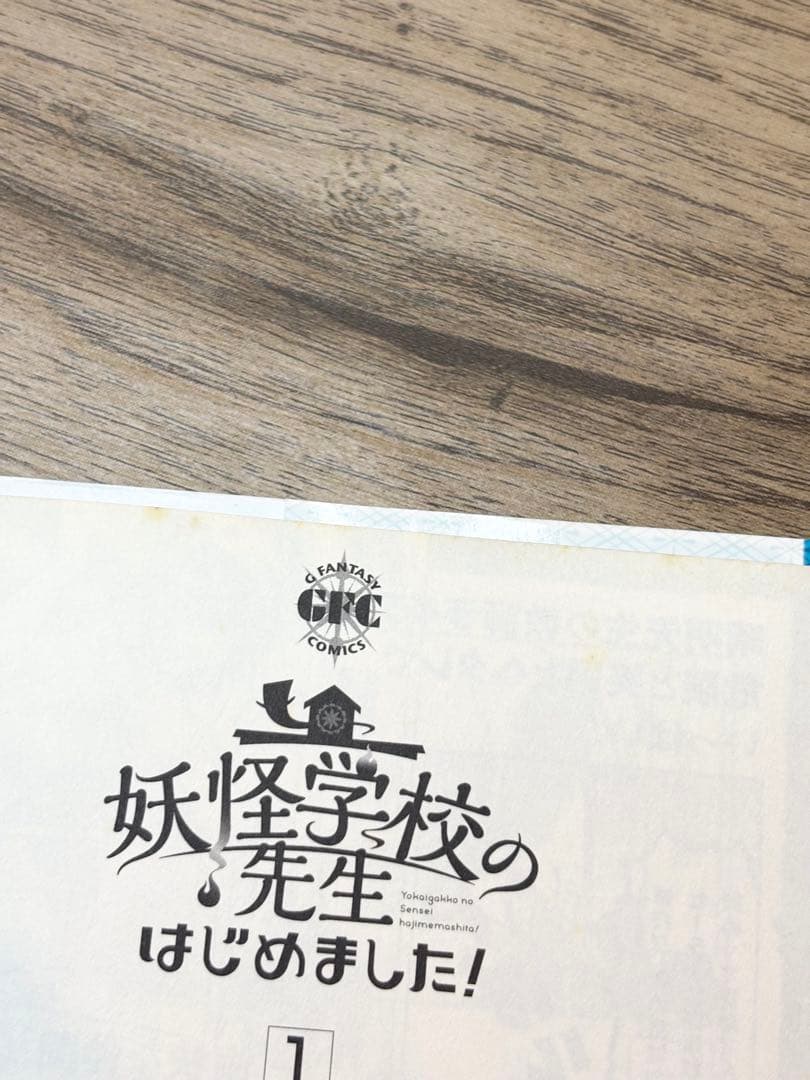 G FANTASY
GFC
COMICS
妖怪学校の
先生
Yokaigakko no
Sensei
hajimemashita!
はじめました!
1